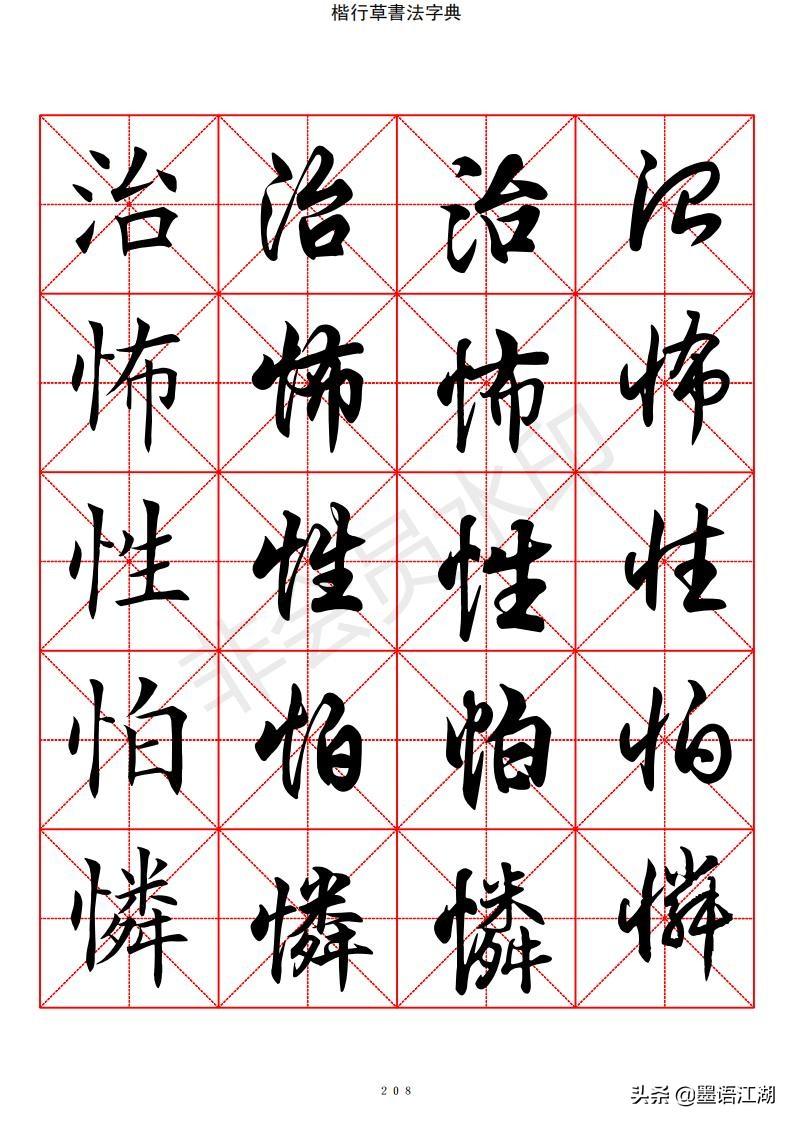 楷行草書法字典
治治治治
怖怖怖怖
性性性性
怕怕怕怕
憐憐憐憐
非会员水印
208
头条 @墨语江湖